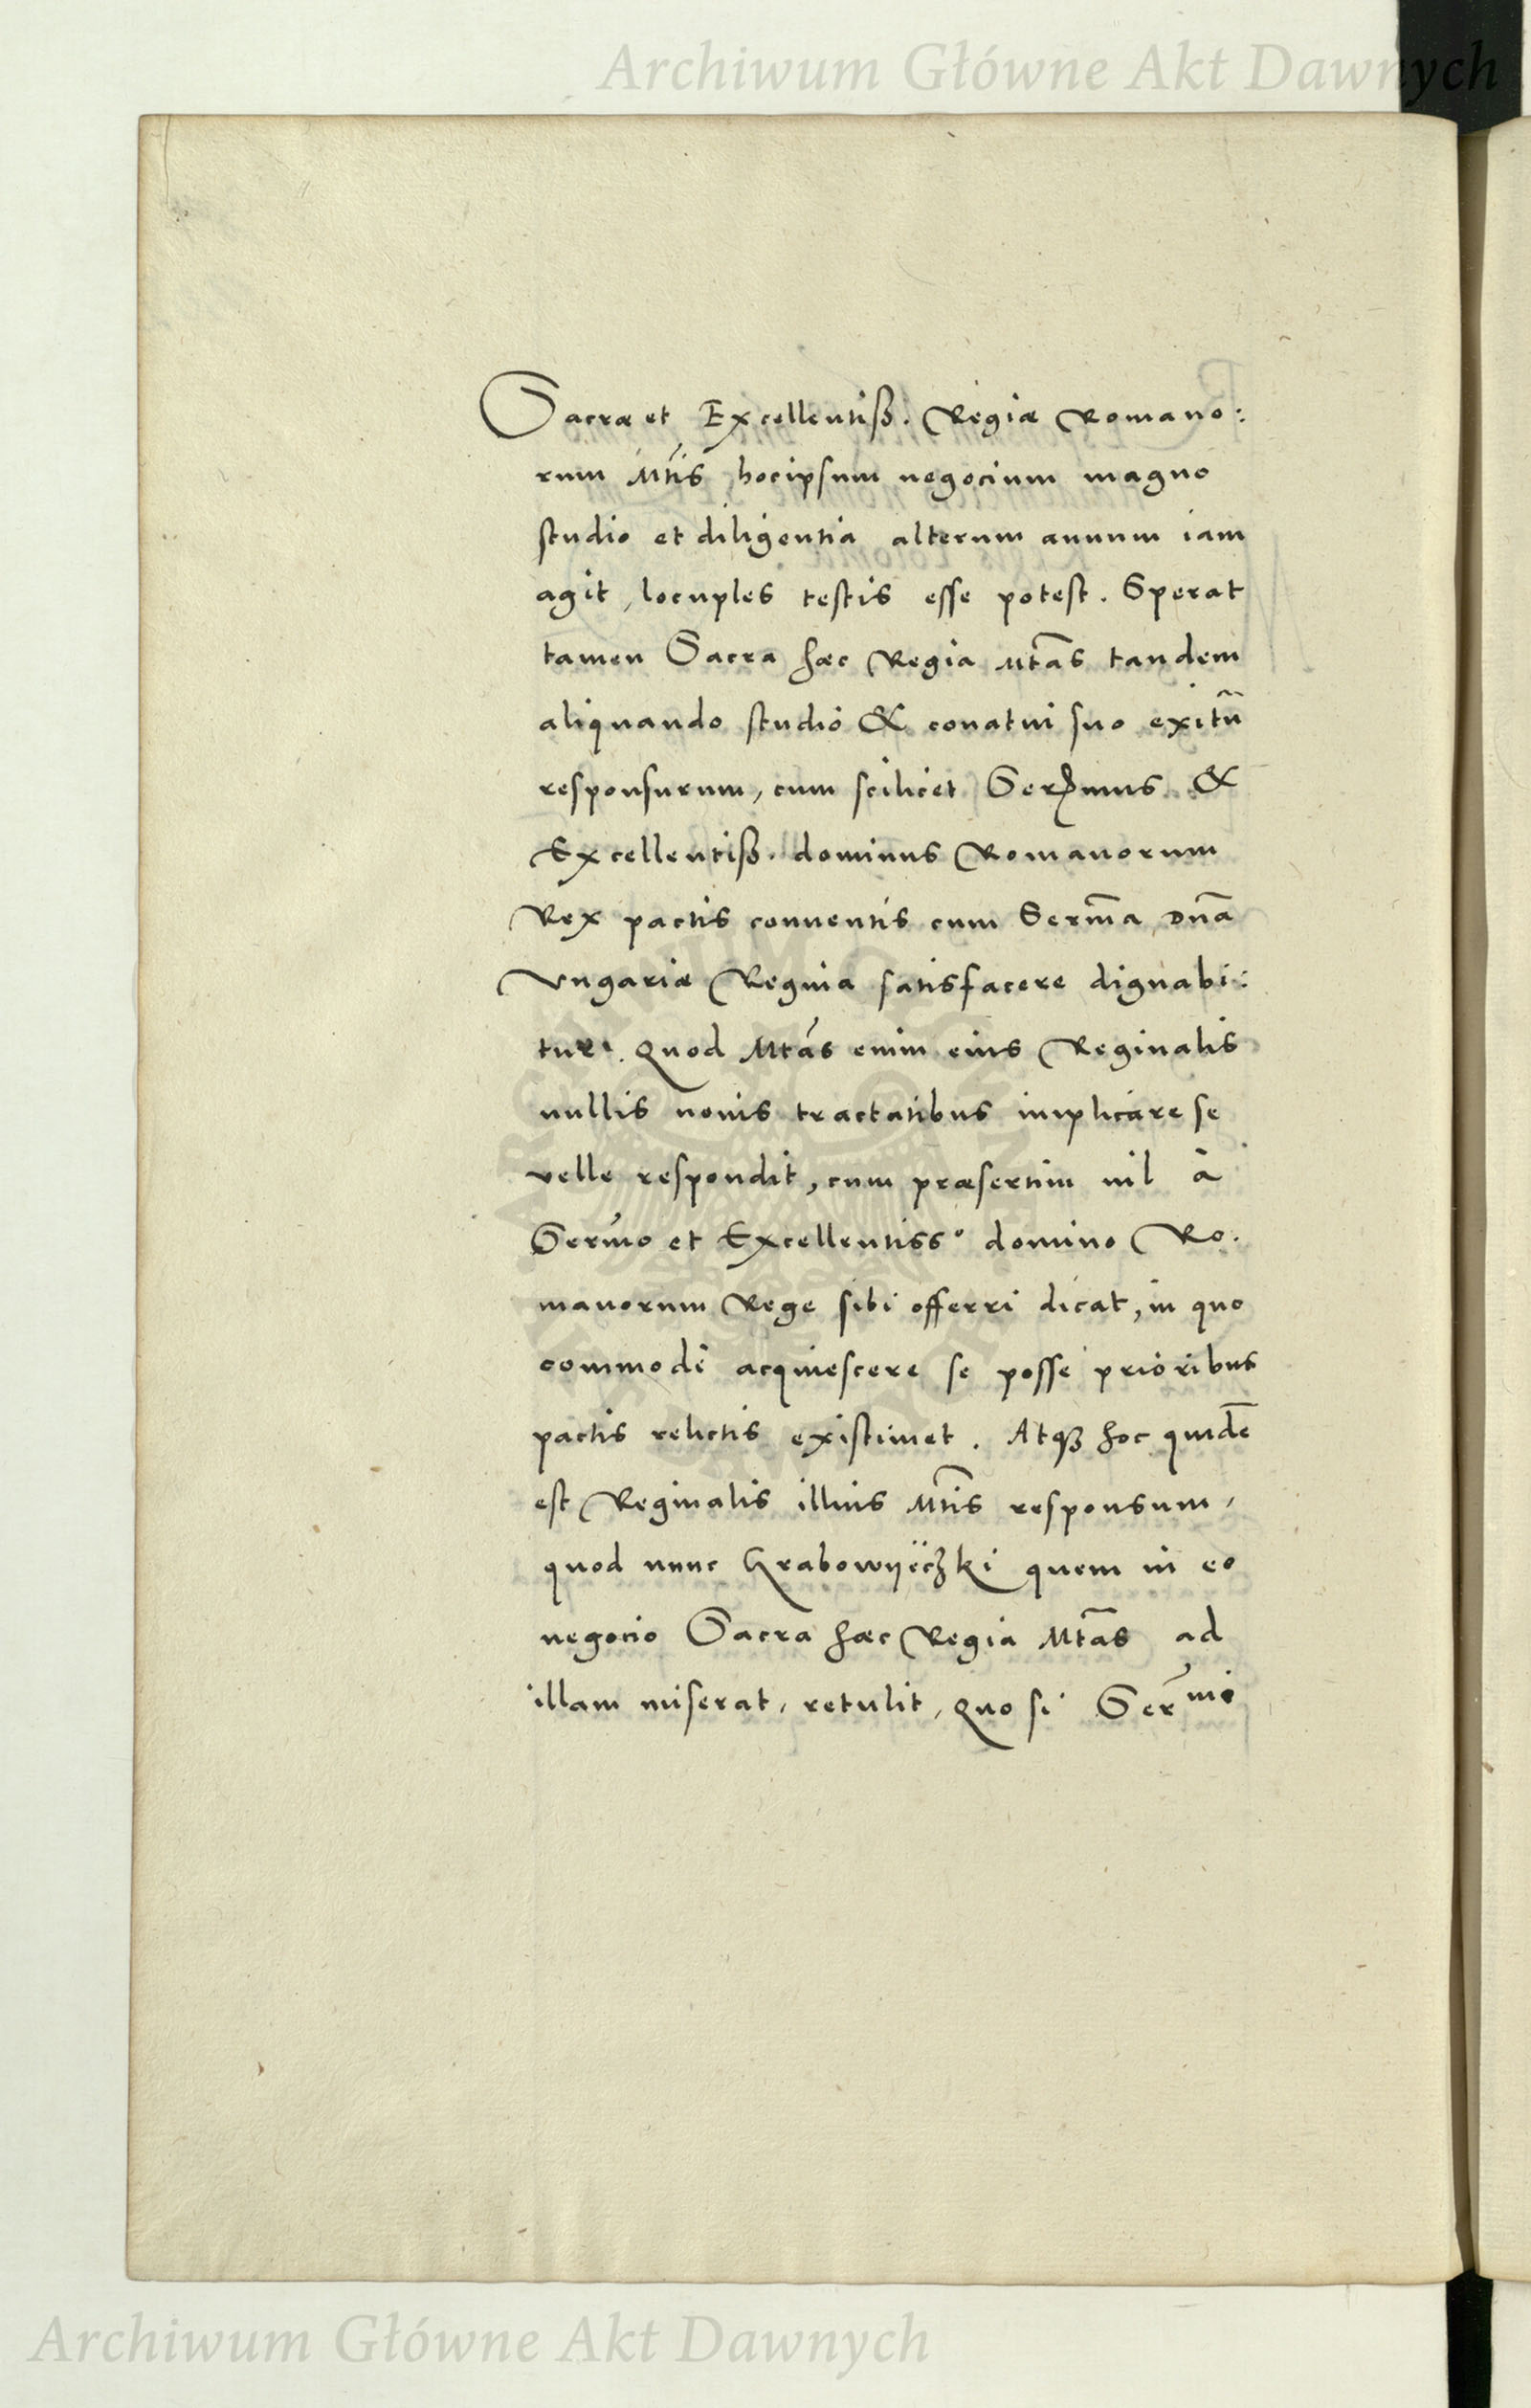 Archiwum Główne Akt Dawnych
Sacræ et Excellentiß. Regiæ Romano:
rum Mtis hocipsum negocium magno
studio et diligentia alterum annum iam
agit, locuples testis esse potest. Sperat
tamen Sacra hæc Regia Mtas tandem
aliquando studio & conatui suo exitū
responsurum, cum scilicet Serꝫmus &
Excellentiß. dominus Romanorum
Rex pactis conuentis cum Serma Dna
Vngariæ Regina satisfacere dignabi:
tur. Quod Mtas enim eius Reginalis
nullis nouis tractatibus implicare se
velle respondit, cum præsertim nil à
Sermo et Excellentisso domino Ro.
manorum Rege sibi offerri dicat, in quo
commodè acquiescere se posse prioribus
pactis relictis existimet. Atqꝫ hoc quidē
est Reginalis illius Mtis responsum,
quod nunc Grabowyëczki quem in eo
negocio Sacra hæc Regia Mtas ad
illam miserat, retulit, Quo si Sermo
Archiwum Główne Akt Dawnych